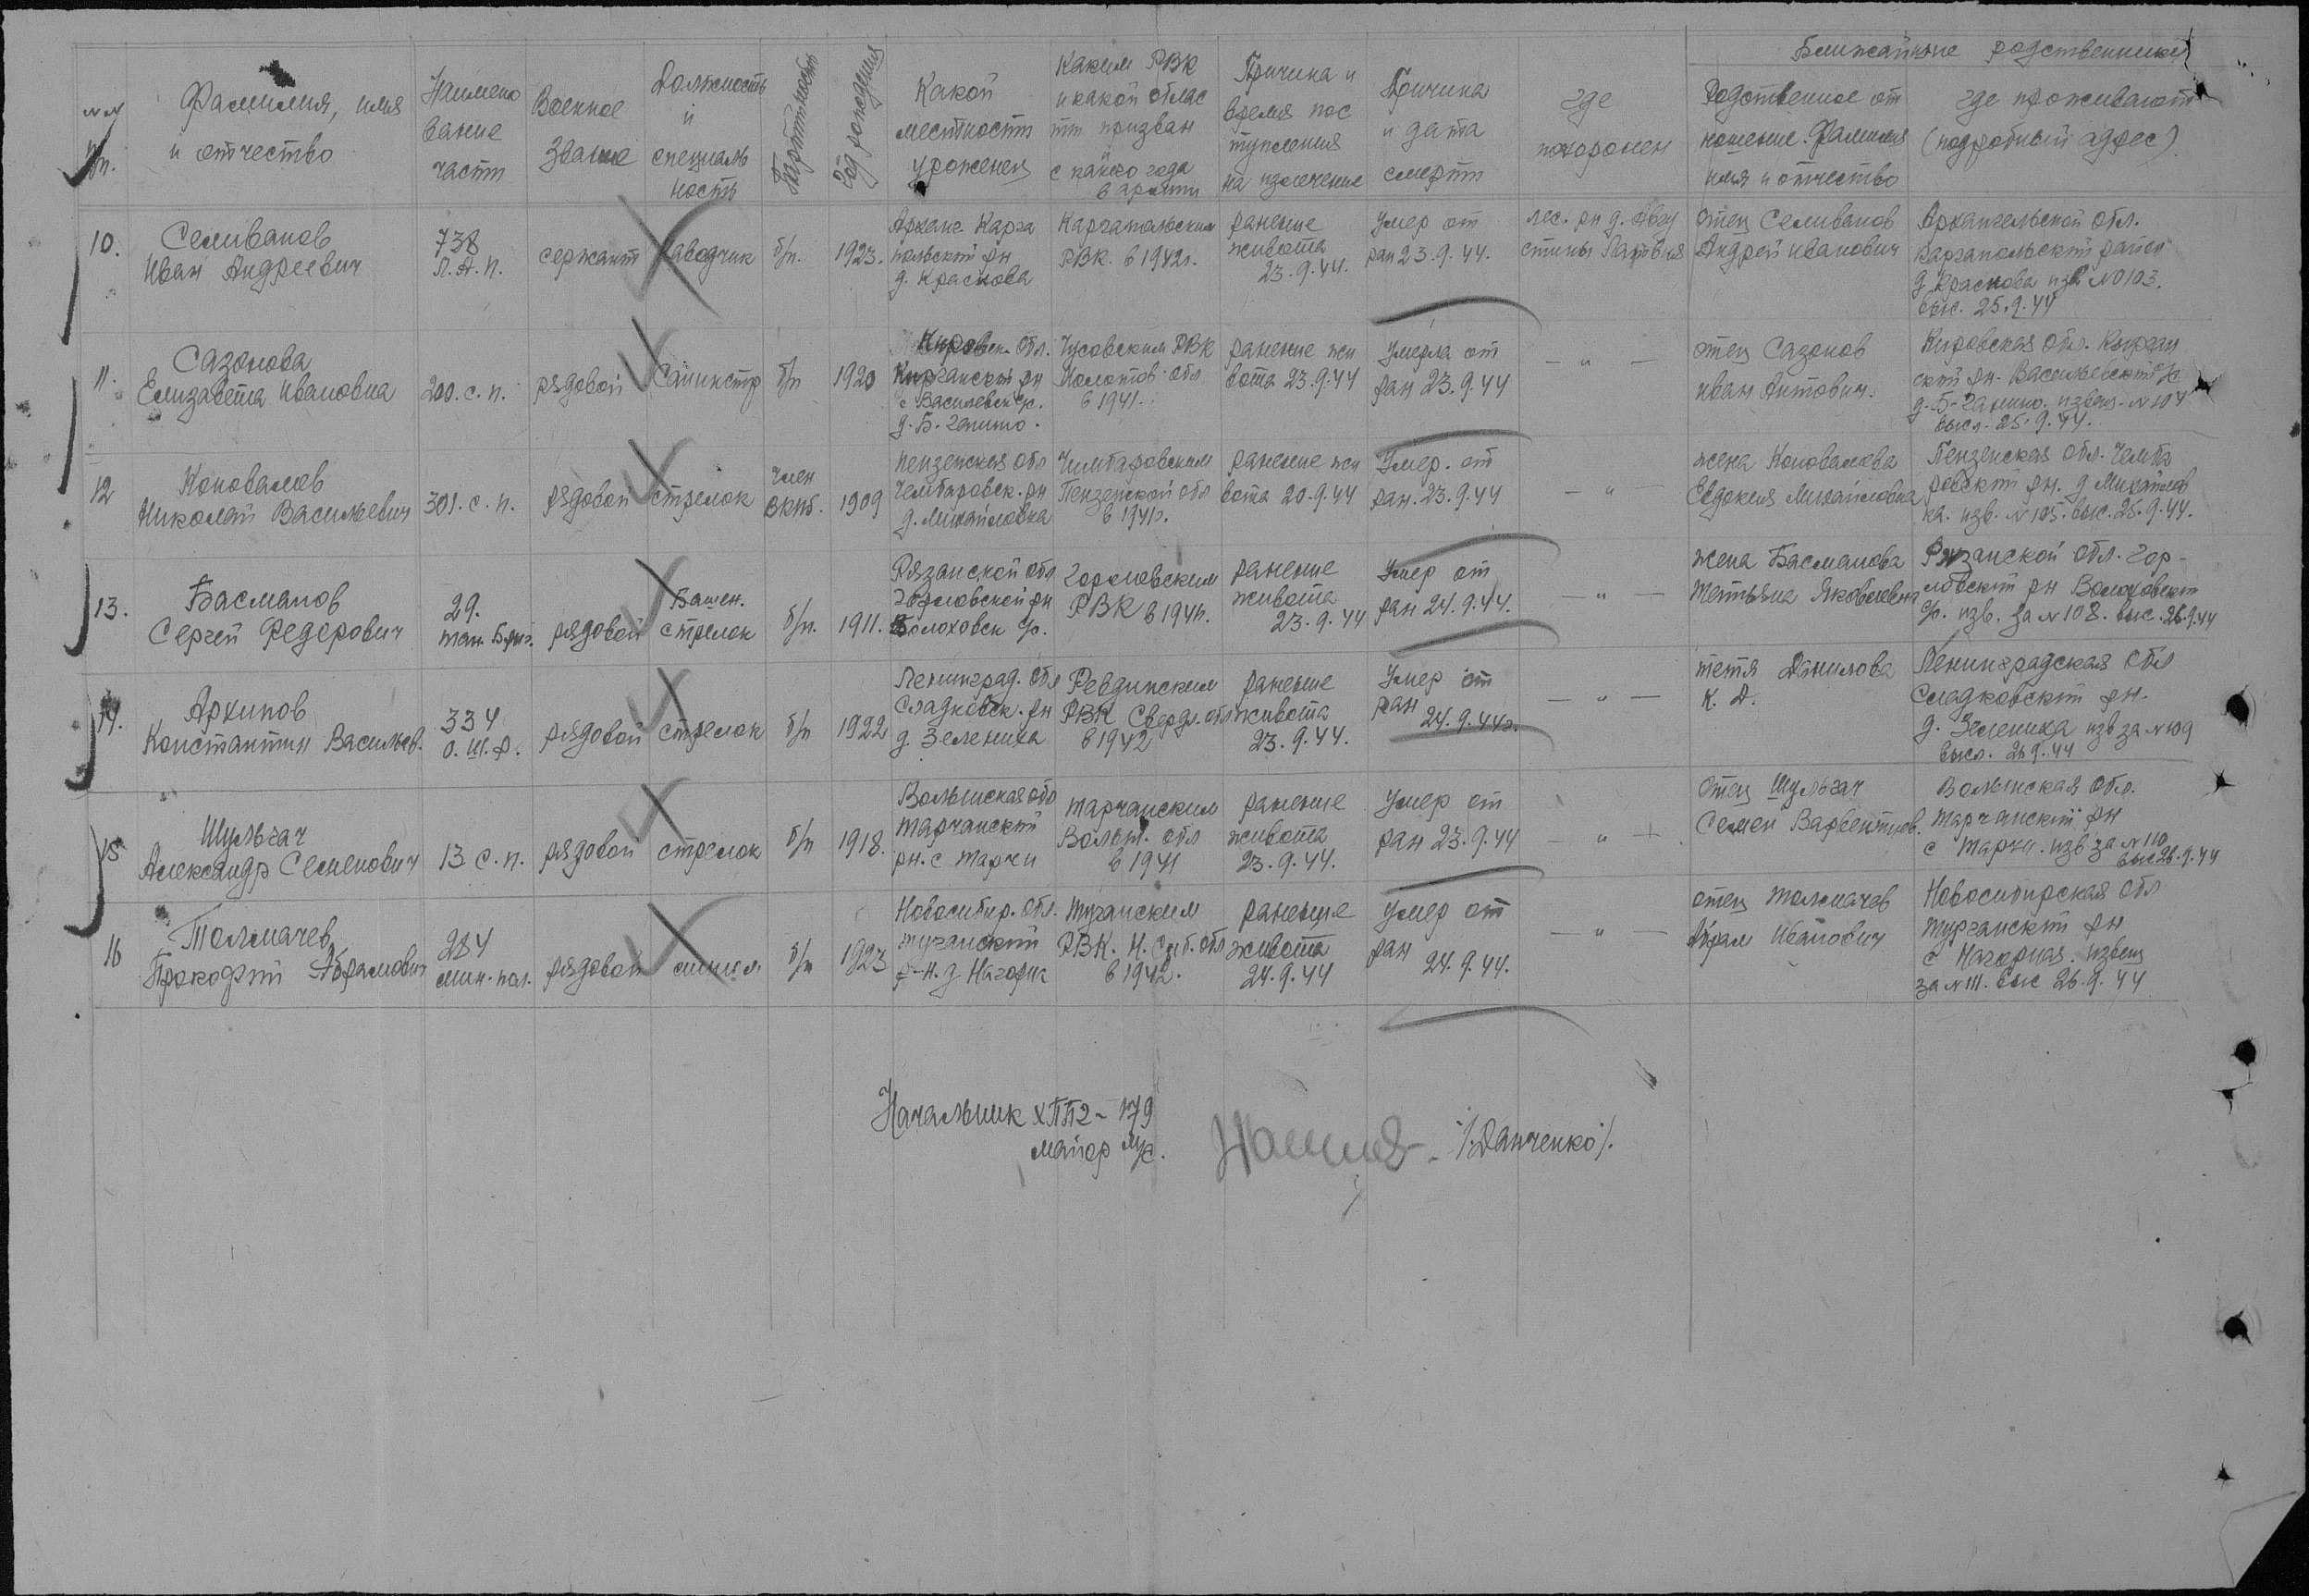 Ближайшие родственники
№№ п/п.
Фамилия, имя
и отчество
Наимено
вание
части
Военное
звание
Должность
и
специаль
ность
Партийность
Год рождения
Какой
местности
уроженец
Каким РВК
и какой облас
ти призван
с какого года
в армии
Причина и
время пос
тупления
на излечение
Причина
и дата
смерти
где
похоронен
Родственное от
ношение. Фамилия
имя и отчество
где проживают
(подробный адрес)
10.
Селиванов
Иван Андреевич
738
Л.А.П.
сержант
наводчик
б/п.
1923.
Арханг. Карга
польский рн
д. Краснова
Каргапольским
РВК. в 1942г.
ранение
живота
23.9.44.
Умер от
ран 23.9.44.
лес. рн д.
Латвия
отец Селиванов
Андрей Иванович
Архангельской обл.
Каргапольский район
д Краснова изв №0103.
выс. 25.9.44
11.
Сазонова
Елизавета Ивановна
200. с. п.
рядовой
Санинстр
б/п
1920
Кировск. обл.
рн
с Василевск с/с.
д. Б-Ганино.
Чусовским РВК
Молотов. обл
в 1941.
ранение жи
вота 23.9.44
Умерла от
ран 23.9.44
— " —
отец Сазонов
Иван Антович.
Кировская обл.
ский рн. Васильевский с/с
д. Б-Ганино. извещ. №104
высл. 25.9.44.
12
Коновалов
Николай Васильевич
301. с. п.
рядовой
стрелок
член
ВКПб.
1909
Пензенская обл
Чембаровск. рн
д. Михайловка
Чимбаровским
Пензенской обл
в 1941г.
ранение жи
вота 20.9.44
Умер. от
ран. 23.9.44
— " —
жена Коновалова
Евдокия Михайловна
Пензенская обл. Чемба
ровский рн. д Михайлов
ка. изв. №105. выс. 25.9.44.
13.
Басманов
Сергей Федерович
29.
тан. Бриг.
рядовой
Башен.
стрелок
б/п.
1911.
Рязанской обл
Горловской рн
Волоховск с/с.
Горловским
РВК в 1941г.
ранение
живота
23.9.44
Умер от
ран 24.9.44.
— " —
жена Басманова
Яковлевна
Рязанской обл. Гор-
ловский рн Волоховский
с/с. изв. за №108. выс. 26.9.44
14.
Архипов
Константин Васильев.
334
О. Ш. Р.
рядовой
стрелок
б/п
1922
Ленинград. обл
Сладковск. рн
д. Зеленика
Ревдинским
РВК Свердл. обл
в 1942
ранение
живота
23.9.44.
Умер от
ран
24.9.44г.
— " —
тетя Данилова
К. Д.
Ленинградская обл
Сладковский рн.
д. Зеленика изв за №109
высл. 26.9.44
15
Шульгач
Александр Семенович
13 с. п.
рядовой
стрелок
б/п
1918.
Волынская обл
тарчанский
рн. с тарчи
тарчанским
Волын. обл
в 1941
ранение
живота
23.9.44.
Умер от
ран 23.9.44
— " —
отец Шульгач
Семен
Волынская обл.
тарчанский рн
с тарчи. изв за №110
выс 26.9.44
16
Толмачев
Прокофий Абрамович
284
мин. пол.
рядовой
б/п
1923
Новосибир. обл.
р-н. д Нагорна
РВК. Н. Сиб. обл
в 1942.
ранение
живота
24.9.44
Умер от
ран
24.9.44.
— " —
отец Толмачев
Абрам Иванович
Новосибирская обл
рн
с Нагорная. извещ
за №111. выс 26.9.44
Начальник ХППГ-179
майор м/с.
/Данченко/.